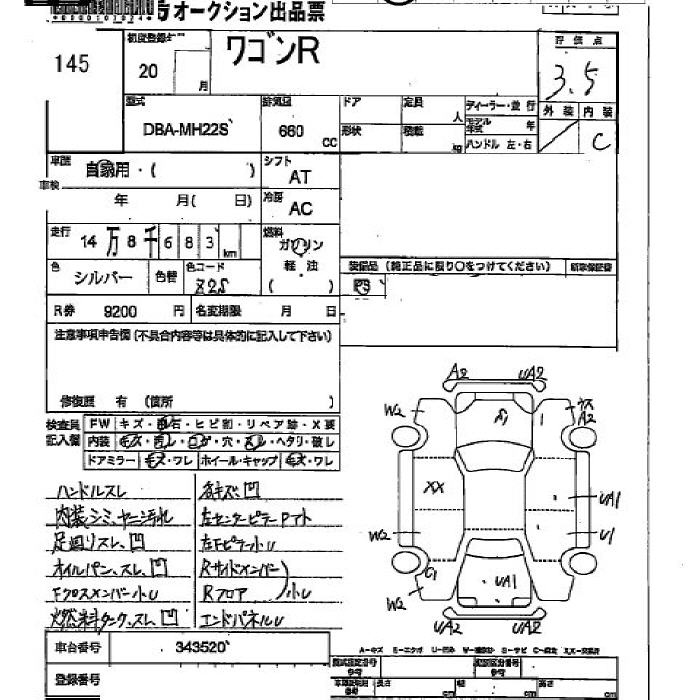 オークション出品票
145
初度登録
20 月
ワゴンR
評価点
3.5
外装 内装
C
型式
DBA-MH22S
排気量
660 cc
ドア
定員 人
ディーラー・並行
形状
積載 kg
モデル年式 年
ハンドル 左・右
車歴 自家用・( )
車検 年 月( 日)
シフト
AT
冷房
AC
走行
14万8千683 km
燃料
ガソリン
軽・油
( )
色 シルバー
色替
色コード
Z2S
装備品 (純正品に限り○をつけてください)
新車保証書
PS
R券 9200 円
名変期限 月 日
注意事項申告欄(不具合内容等は具体的に記入して下さい)
修復歴 有 (箇所 )
検査員記入欄
FW キズ・飛石・ヒビ割・リペア跡・X要
内装 キズ・汚レ・コゲ・穴・スレ・ヘタリ・破レ
ドアミラー キズ・ワレ ホイール・キャップ キズ・ワレ
ハンドルスレ
各キズ凹
内装シミ、ヤニ汚れ
左センターピラーPマト
足廻りスレ、凹
左Fピラー小U
オイルパン、スレ、凹
Rサイドメンバー
Fクロスメンバー小U
Rフロア
小U
燃料タンク、スレ、凹
エンドパネルU
A2 UA2
W2 A1 1 ウス A2
XX UA1
W2 U1
C1 UA1
W2
UA2 UA2
A-キズ E-エクボ U-凹み W-補修跡 S-サビ C-腐食 XX-交換済
車台番号 343520
登録番号
型式指定番号
類別区分番号
長さ cm 幅 cm 高さ cm